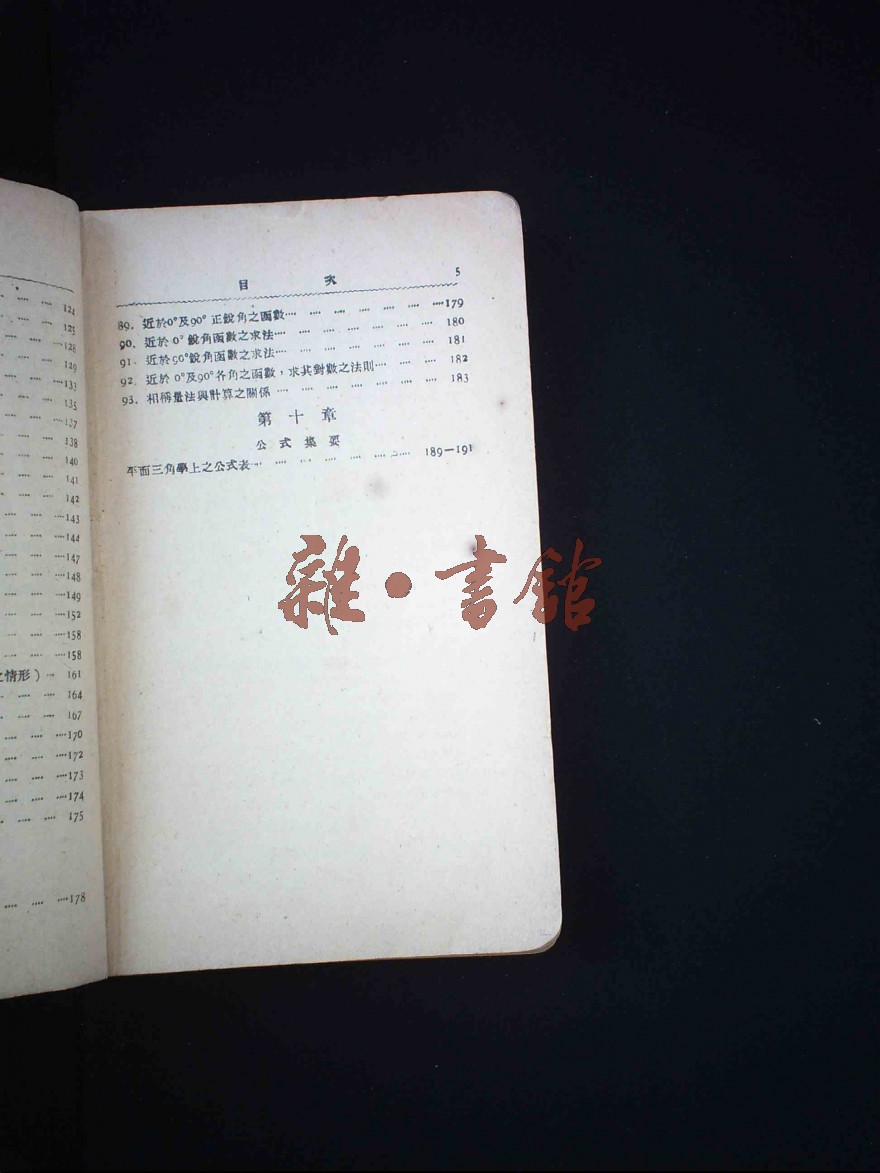 124
125
128
129
133
135
137
138
140
141
142
143
144
147
148
149
152
158
158
之情形) 161
164
167
170
172
173
174
175
178
目 次 5
89. 近於0°及90°正銳角之函數 179
90. 近於0°銳角函數之求法 180
91. 近於90°銳角函數之求法 181
92. 近於0°及90°各角之函數,求其對數之法則 182
93. 相稱量法與計算之關係 183
第十章
公式集要
平面三角學上之公式表 189—191
雜·書館